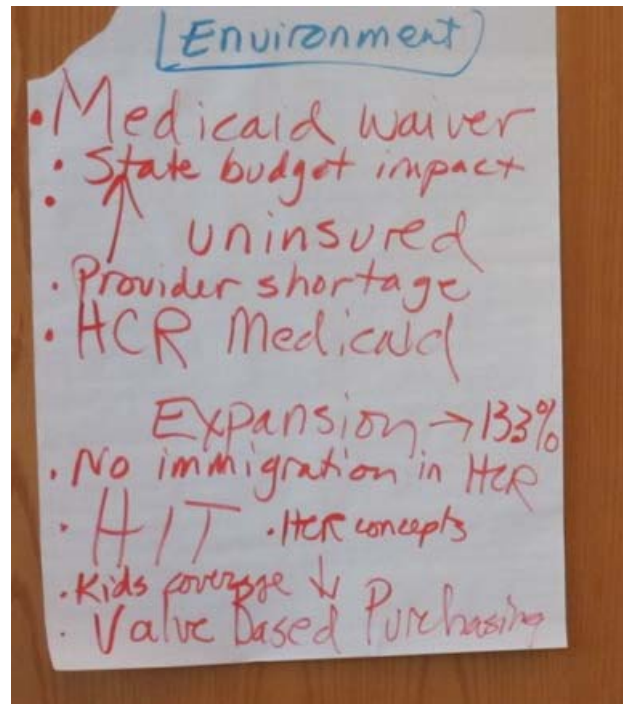 Environment
• Medicaid waiver
• State budget impact
• ↑ uninsured
• Provider shortage
• HCR Medicaid
Expansion → 133%
• No immigration in HCR
• HIT • HCR concepts
• Kids coverage ↓
• Value Based Purchasing